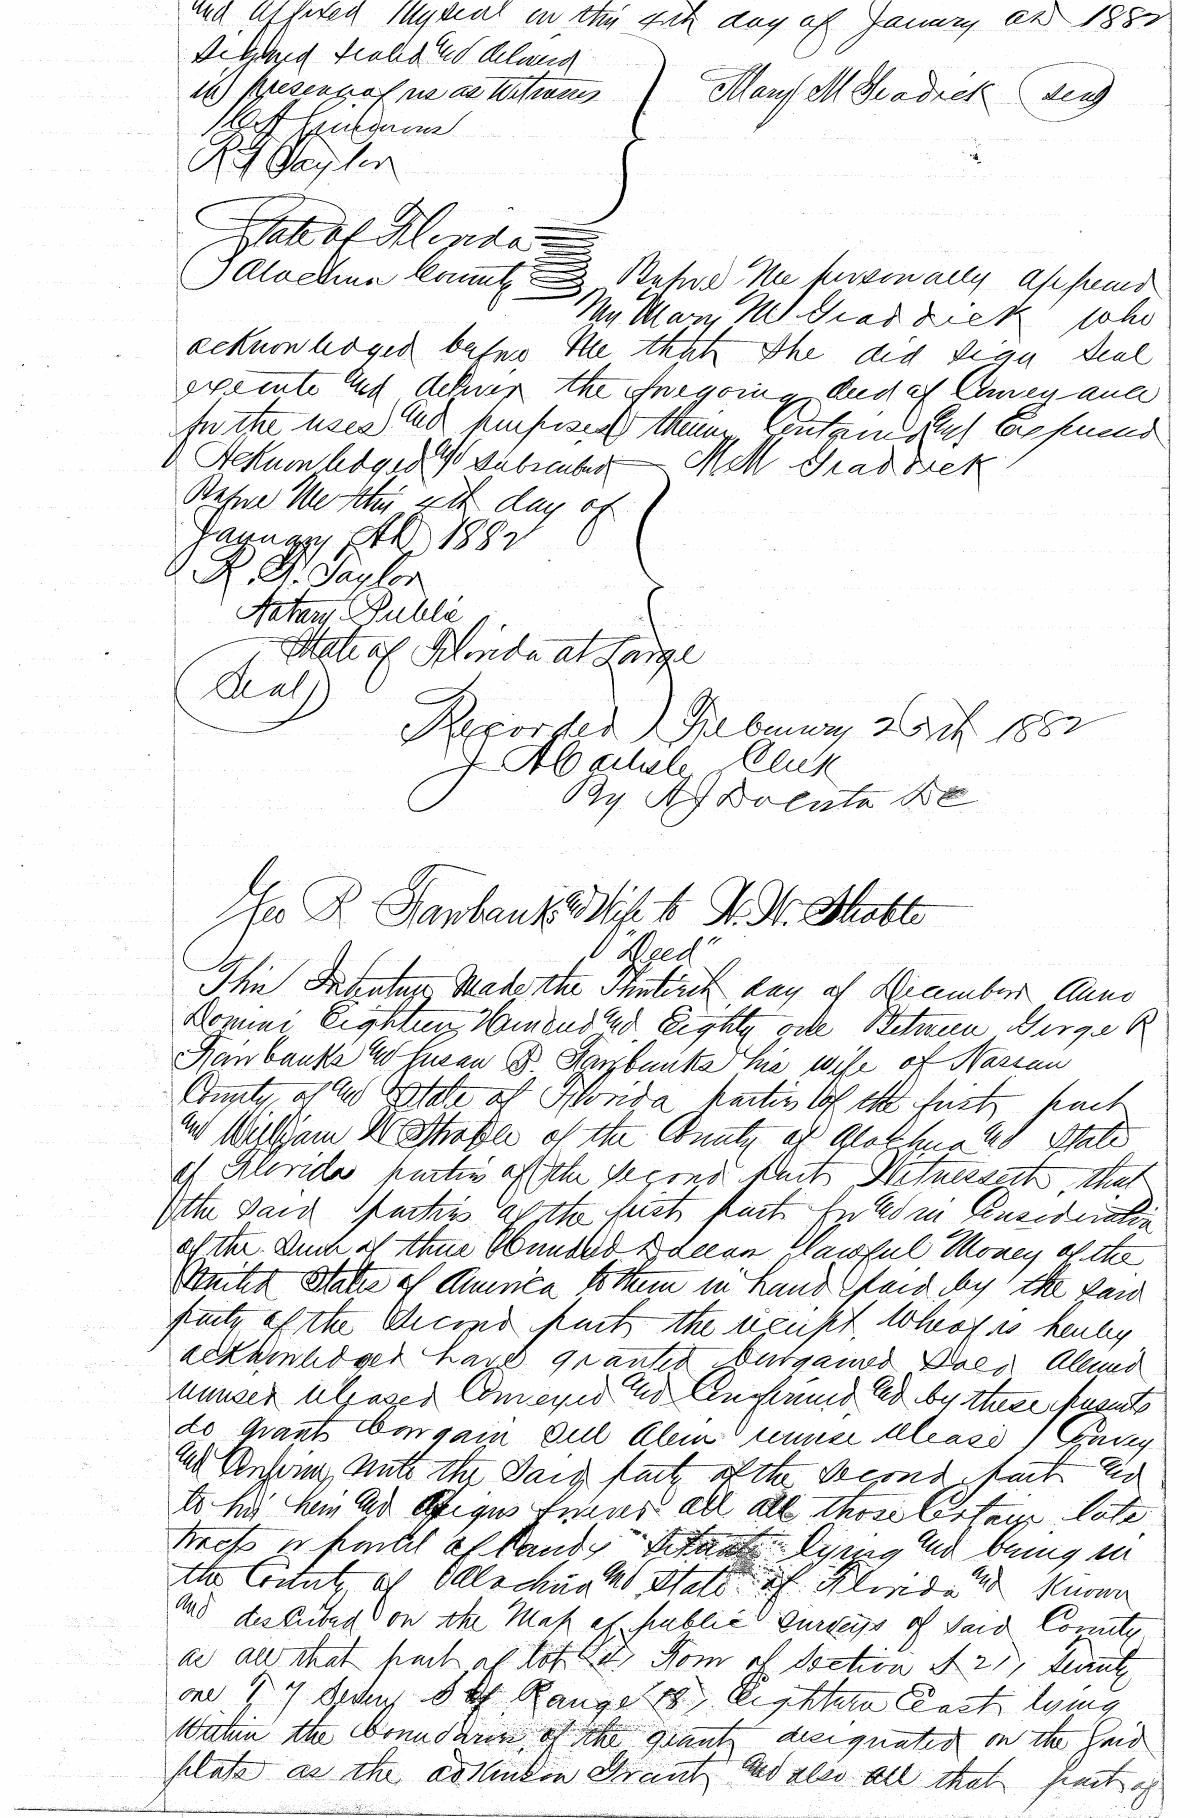 and affixed My seal on this 4th day of January AD 1882
Signed Sealed and delivered
in presence of us as Witnesses Mary M Gradick Seal
R F Taylor
State of Florida
Alachua County Before Me personally appeared
Mary M Graddick who
acknowledged before Me that She did Sign Seal
execute and deliver the foregoing deed of Conveyance
for the uses and purposes therein Contained and Expressed
Acknowledged and Subscribed M M Graddick
Before Me this 4th day of
January AD 1882
R. F. Taylor
Notary Public
State of Florida at Large
Seal
Recorded February 25th 1882
J A Carlisle Clerk
By A J DaCosta DC
Geo R Fairbanks and Wife to W. W. Shobte
"Deed"
This Indenture Made the Thirtieth day of December Anno
Domini Eighteen Hundred and Eighty one Between George R
Fairbanks and Susan B. Fairbanks his wife of Nassau
County of and State of Florida parties of the first part
and William W of the County of Alachua and State
of Florida parties of the Second part Witnesseth, that
the Said parties of the first part for and in Consideration
of the Sum of three Hundred Lawful Money of the
United States of America to them in hand paid by the Said
party of the Second part the receipt Whereof is hereby
acknowledged have granted bargained Sold Aliened
remised released Conveyed and Confirmed and by these presents
do grant bargain Sell Alien remise release Convey
and Confirm Unto the Said party of the Second part and
to his heirs and assigns forever all all those Certain lots
tracts or parcel of Land Situate lying and being in
the County of Alachua and State of Florida and Known
and described on the Map of public Surveys of Said County
as all that part of lot 4, Four of Section S 21, twenty
one T 7 Seven S of Range 18, Eighteen East lying
Within the boundaries of the grant designated on the Said
plats as the Grant and also all that part of